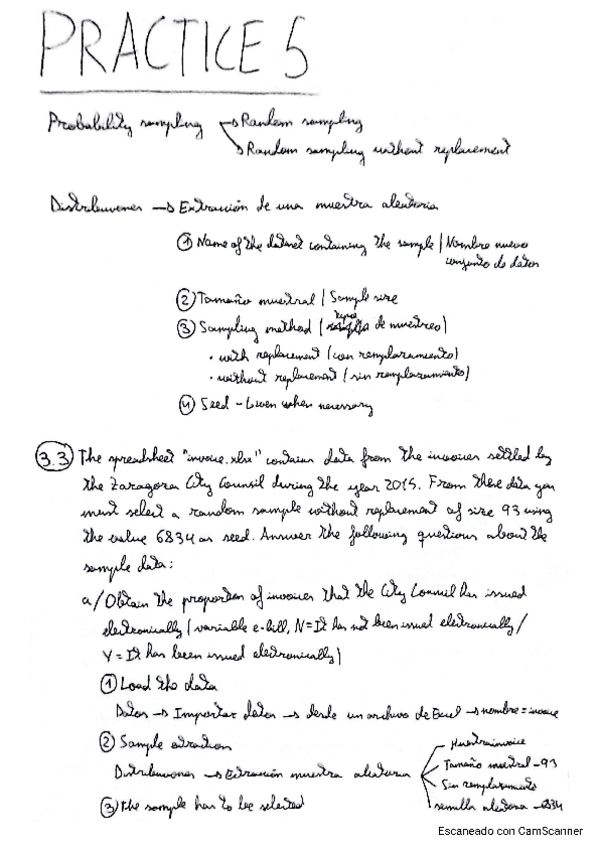 PRACTICE 5
Probability sampling → Random sampling
→ Random sampling without replacement
Distribuciones → Extracción de una muestra aleatoria
① Name of the dataset containing the sample / Nombre nuevo
conjunto de datos
② Tamaño muestral / Sample size
③ Sampling method (tipo de muestreo)
• with replacement (con remplazamiento)
• without replacement (sin remplazamiento)
④ Seed - Given when necessary
3.3 The spreadsheet "invoice.xlsx" contains data from the invoices settled by
the Zaragoza City Council during the year 2015. From these data you
must select a random sample without replacement of size 93 using
the value 6834 as seed. Answer the following questions about the
sample data:
a/ Obtain the proportion of invoices that the City Council has issued
electronically (variable e-bill, N=It has not been issued electronically/
Y=It has been issued electronically)
① Load the data
Datos → Importar datos → desde un archivo de Excel → nombre=invoice
② Sample extraction
Distribuciones → Extracción muestra aleatoria
Muestrainvoice
Tamaño muestral -93
Sin remplazamiento
semilla aleatoria -6834
③ The sample has to be selected
Escaneado con CamScanner